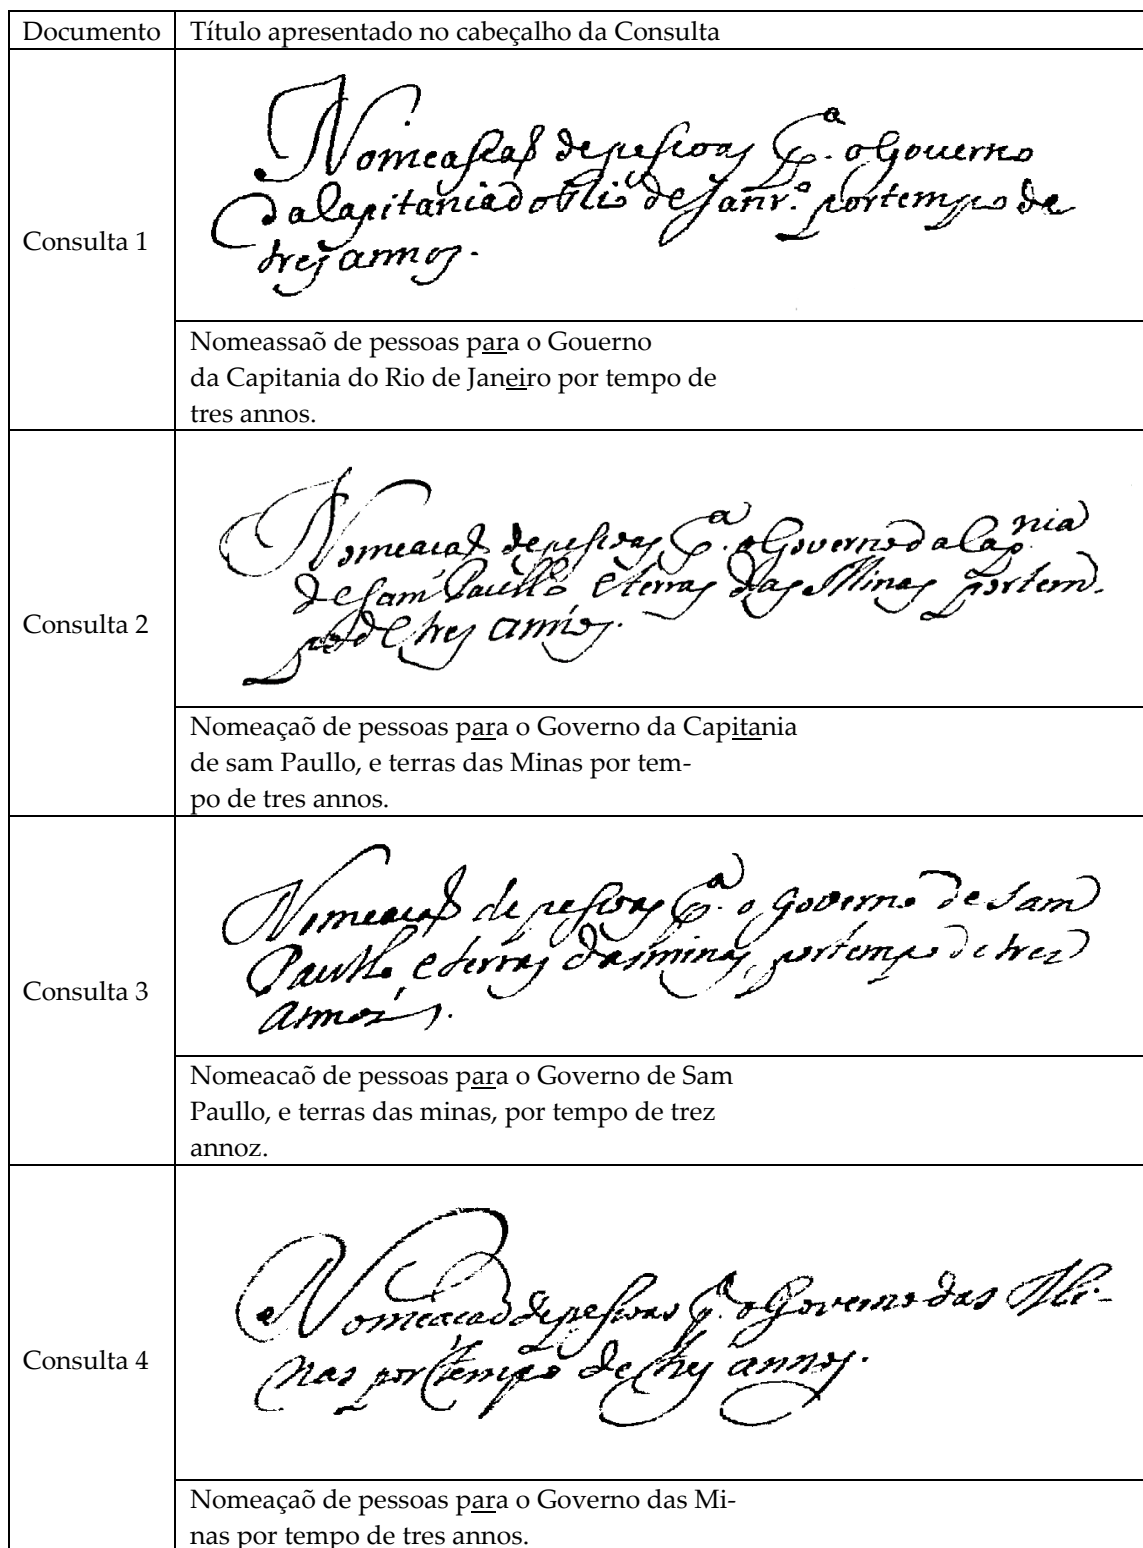 Documento Título apresentado no cabeçalho da Consulta
Consulta 1
Nomeassaõ de pessoas p.ª o Gouerno
da Capitania do Rio de Janr.º por tempo de
tres annos.
Nomeassaõ de pessoas para o Gouerno
da Capitania do Rio de Janeiro por tempo de
tres annos.
Consulta 2
Nomeaçaõ de pessoas p.ª o Governo da Cap.nia
de sam Paullo, e terras das Minas por tem-
po de tres annos.
Nomeaçaõ de pessoas para o Governo da Capitania
de sam Paullo, e terras das Minas por tem-
po de tres annos.
Consulta 3
Nomeacaõ de pessoas p.ª o Governo de Sam
Paullo, e terras das minas, por tempo de trez
annoz.
Nomeacaõ de pessoas para o Governo de Sam
Paullo, e terras das minas, por tempo de trez
annoz.
Consulta 4
Nomeaçaõ de pessoas p.ª o Governo das Mi-
nas por tempo de tres annos.
Nomeaçaõ de pessoas para o Governo das Mi-
nas por tempo de tres annos.